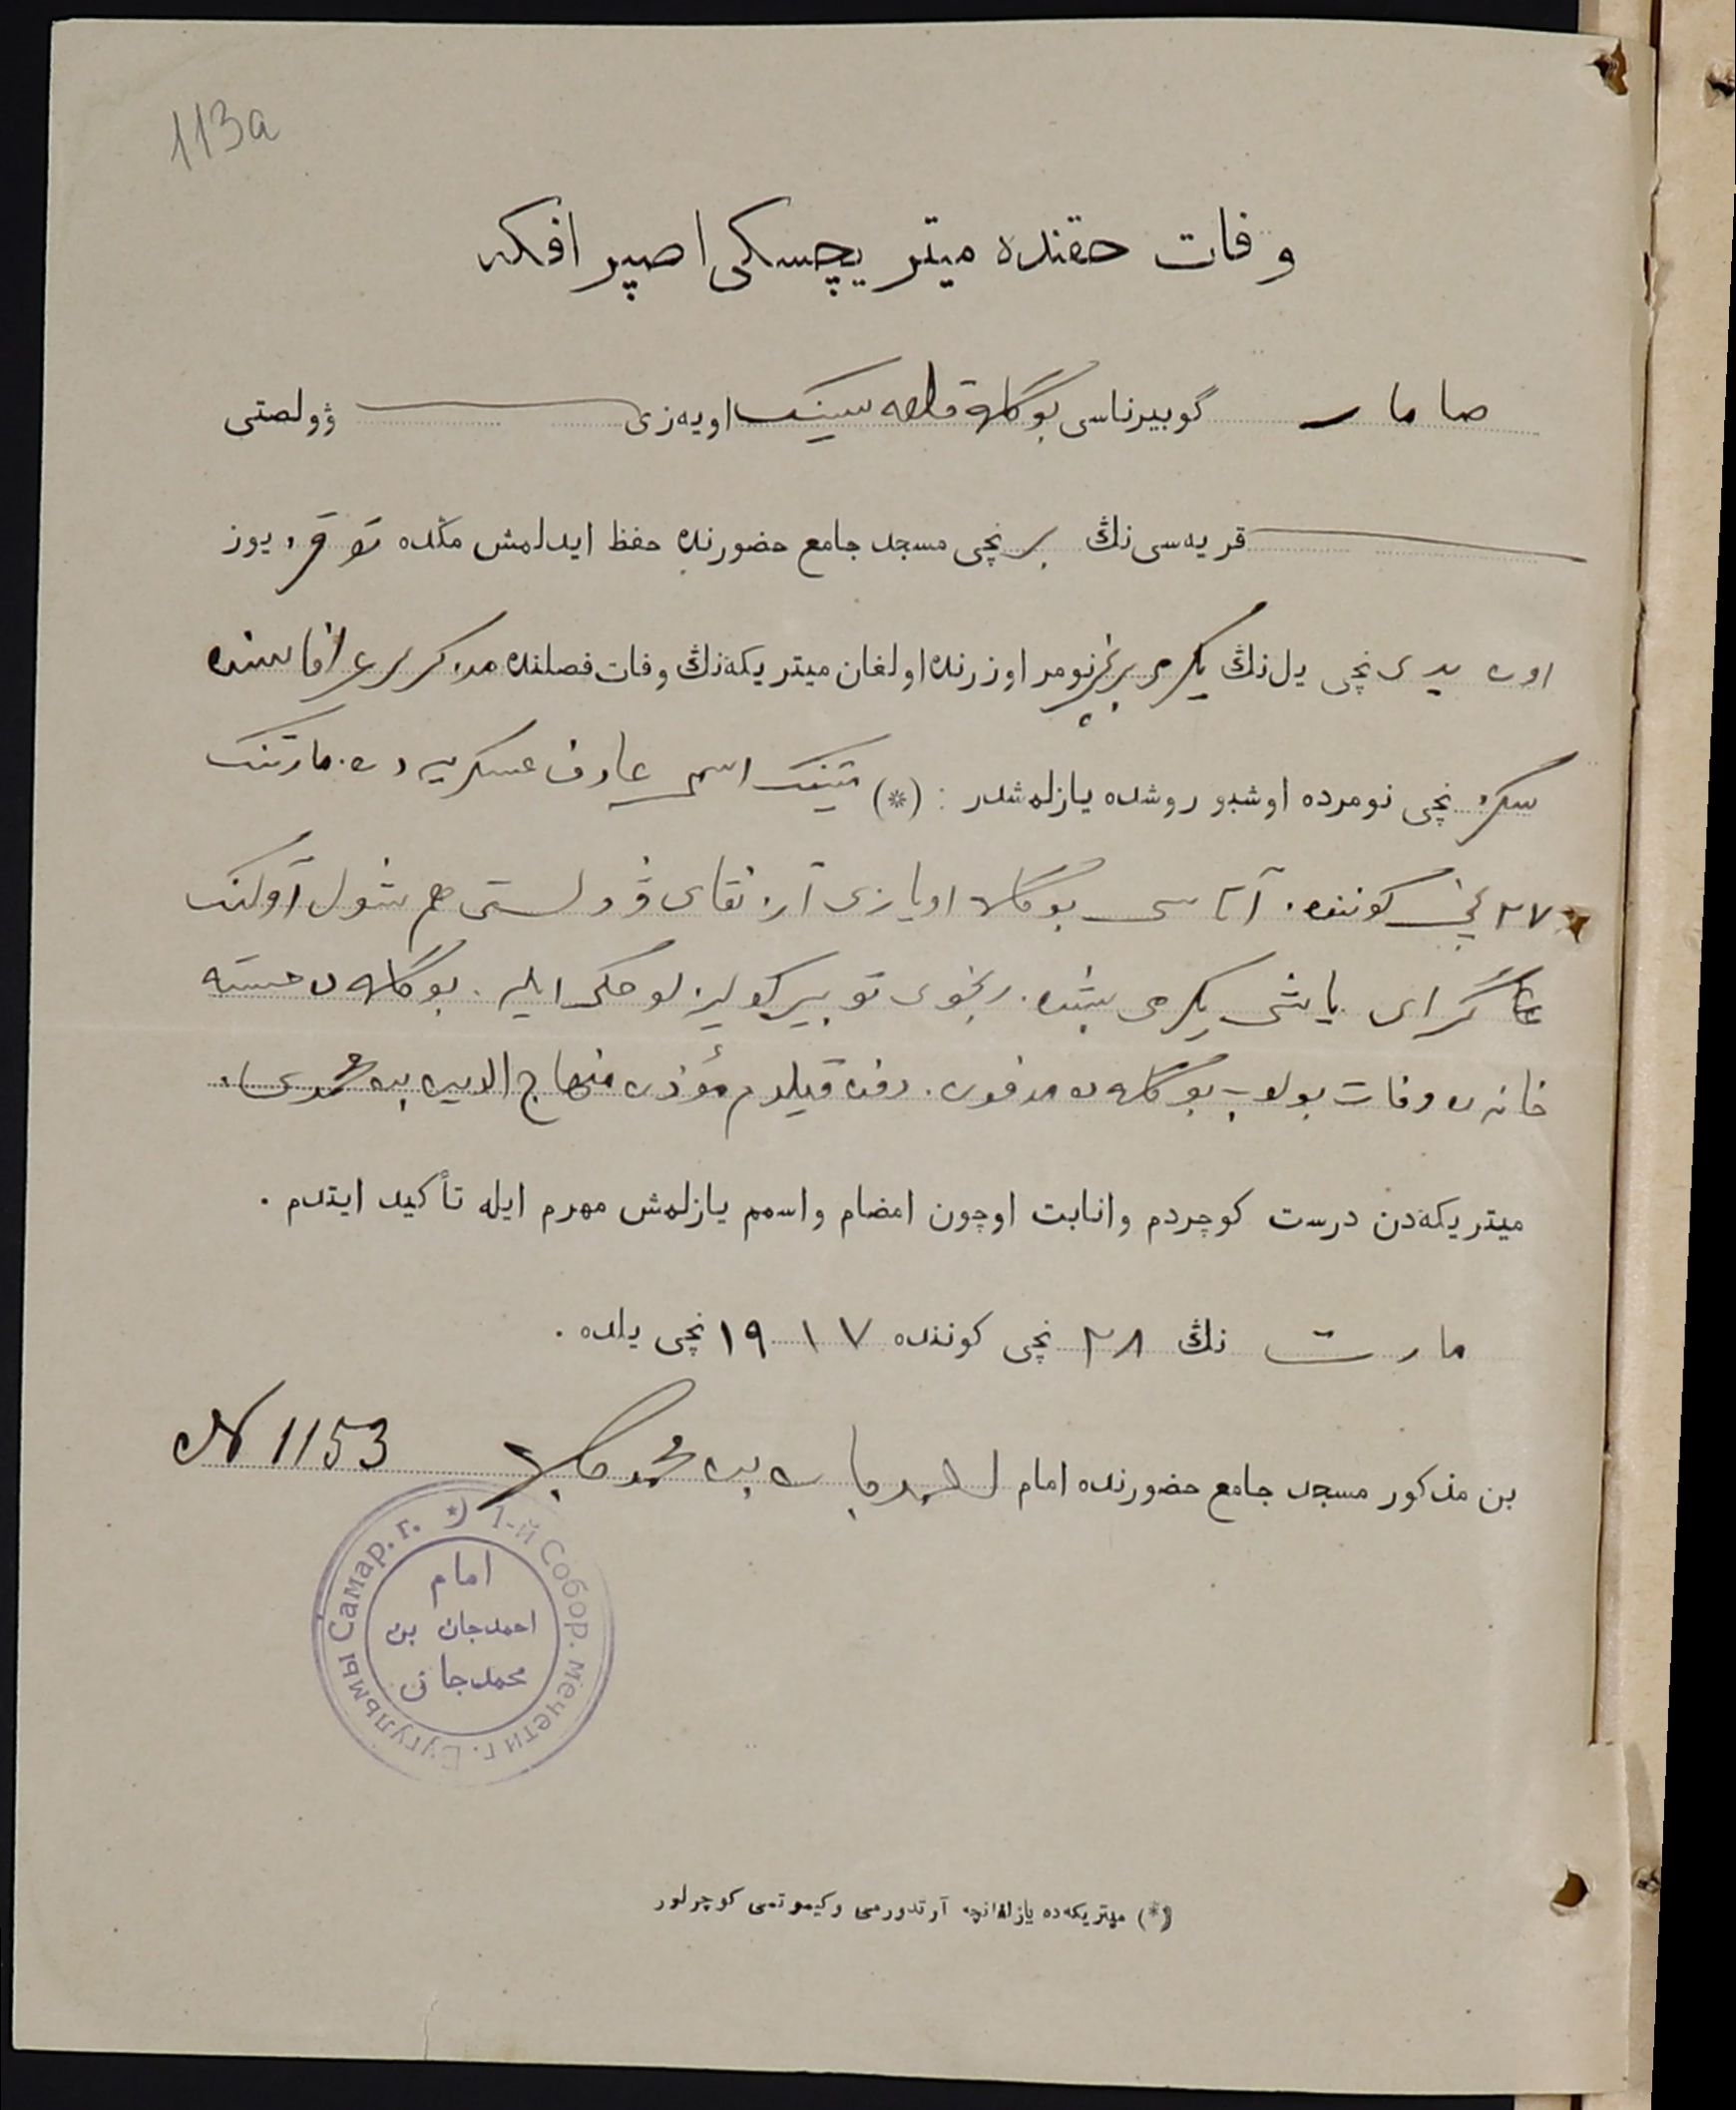 113а
وفات حقنده میتریچسکی اصپرافکه
صامار گوبیرناسی بوگلمه قلعه سینک اویەزی ۋولصتی
قریه‌سی‌نڭ بر نچی مسجد جامع حضورنده حفظ ایدلمش مڭده توقز یوز
اون یدی نچی یل‌نڭ یکرمی برنچی نومر اوزرنده اولغان میتریکه‌نڭ وفات فصلنده مذکرلر
سکز نچی نومرده اوشبو روشده یازلمشدر : (*) میتنک اسمی عارف عسکریه دن. مارتنک
۲۷ نچی کوننده. آتاسی بوگلمه اویازی ۋولستی هم شول آولنک
یاشی یکرمی بشده. بوگلمه ده خسته
خانه ده وفات بولوب بوگلمه ده مدفون. دفن قیلدم مؤذن منهاج الدین بن
میتریکه‌دن درست کوچردم وانابت اوچون امضام واسمم یازلمش مهرم ایله تأکید ایتدم .
مارت نڭ ۲۸ نچی کوننده ۱۹۱۷ نچی یلده .
بن مذکور مسجد جامع حضورنده امام احمدجان بن محمدجان
N 1153
1-й Собор. мечети г. Бугульмы Самар. г.
امام
احمدجان بن
محمدجان
(*) میتریکه‌ده یازلغانچه آرتدورمی وکیموتمی کوچرلور